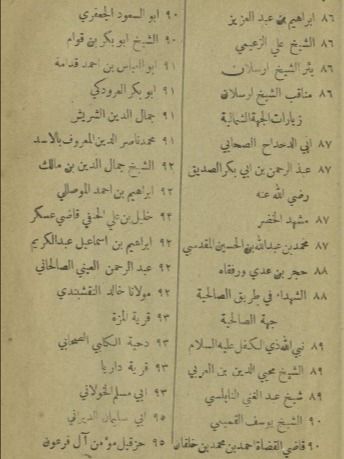 ٨٦ ابراهيم بن عبد العزيز
٨٦ الشيخ علي الزعيمي
٨٦ بئر الشيخ ارسلان
٨٦ مناقب الشيخ ارسلان
زيارات الجهة الشمالية
٨٧ ابي الدحداح الصحابي
٨٧ عبد الرحمن بن ابي بكر الصديق
رضي الله عنه
٨٧ مشهد الخضر
٨٧ محمد بن عبد الله بن الحسين المقدسي
٨٨ حجر بن عدي ورفقاه
٨٨ الشهداء في طريق الصالحية
جهة الصالحية
٨٩ نبي الله ذي الكفل عليه السلام
٨٩ الشيخ محيي الدين بن العربي
٨٩ شيخ عبد الغني النابلسي
٩٠ الشيخ يوسف القميني
٩٠ قاضي القضاة احمد بن محمد بن خلقان
٩٠ ابو السعود الجعفري
٩٠ الشيخ ابو بكر بن قوام
٩١ ابو العباس بن احمد قدامة
٩١ ابو بكر العرودكي
٩١ جمال الدين الشريش
٩١ محمد ناصر الدين المعروف بالاسد
٩٢ الشيخ جمال الدين بن مالك
٩٢ ابراهيم بن احمد الموصللي
٩٢ خليل بن علي الحنفي قاضي عسكر
٩٢ ابراهيم بن اسماعيل عبد الكريم
٩٢ عبد الرحمن العيني الصالحاني
٩٢ مولانا خالد النقشبندي
٩٣ قرية المزة
٩٣ دحية الكلبي الصحابي
٩٣ قرية داريا
٩٣ ابي مسلم الخولاني
٩٥ ابي سليمان الديراني
٩٥ حزقيل مؤمن آل فرعون